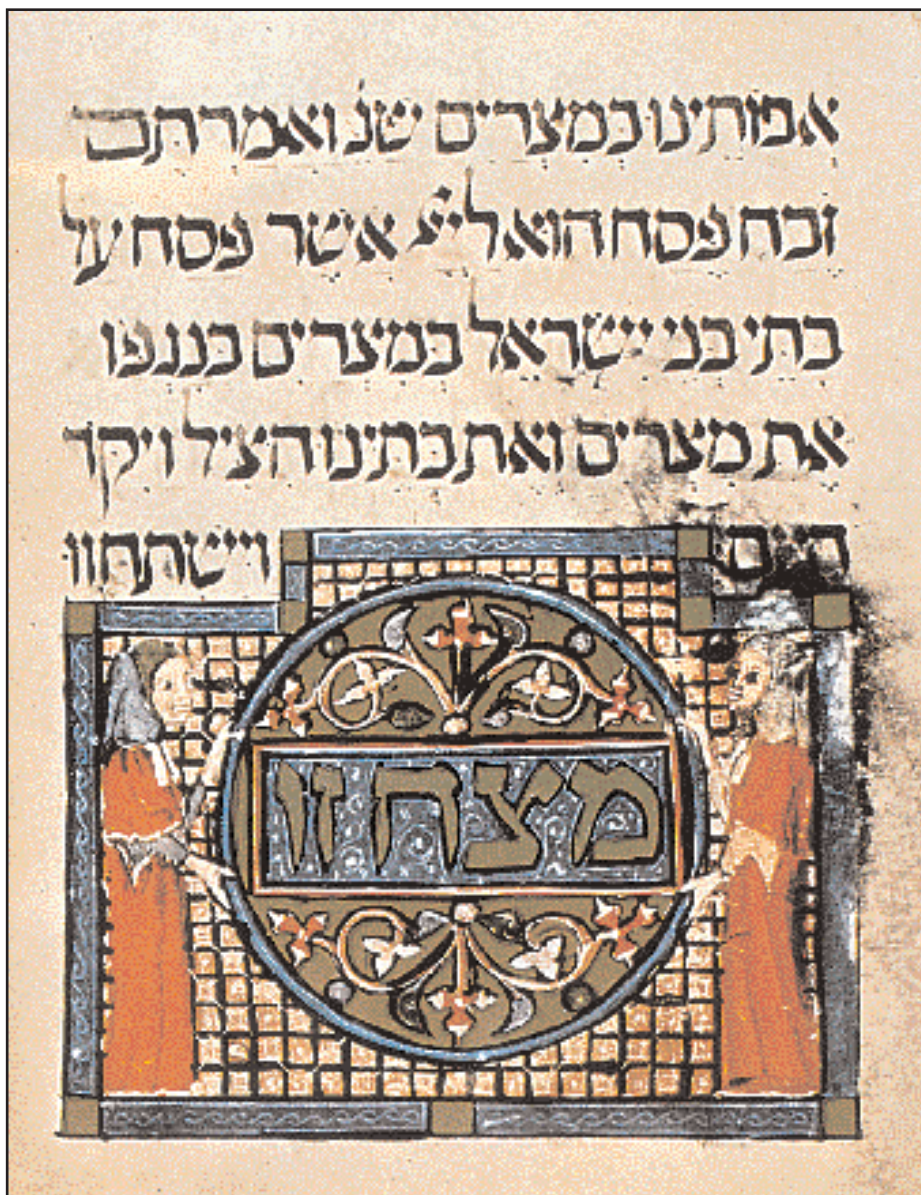 אבותינו במצרים שנ' ואמרתם
זבח פסח הוא ליי' אשר פסח על
בתי בני ישראל במצרים בנגפו
את מצרים ואת בתינו הציל ויקד
העם וישתחוו
מצה זו